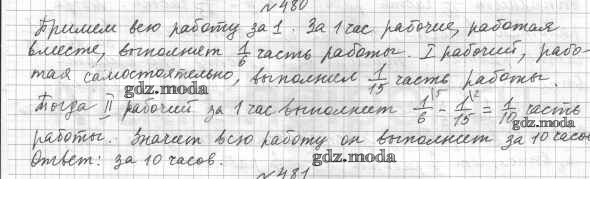 №480
Примем всю работу за 1. За 1 час рабочие, работая
вместе, выполняет 1/6 часть работы. I рабочий, рабо-
тая самостоятельно, выполнил 1/15 часть работы.
gdz.moda
Тогда II рабочий за 1 час выполняет 1/6 \5 - 1/15 \2 = 1/10 часть
gdz.moda
работы. Значит всю работу он выполняет за 10 часов
Ответ: за 10 часов.
gdz.moda
№481